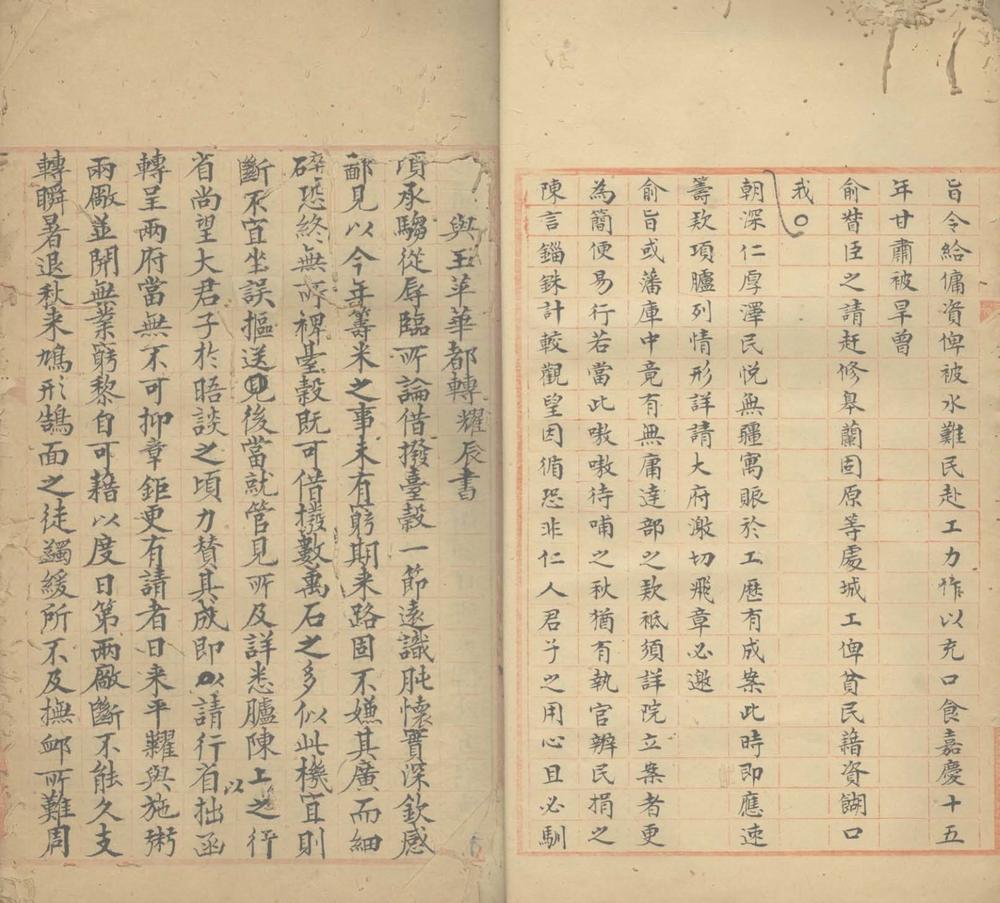 旨令給傭資俾被水難民赴工力作以充口食嘉慶十五
年甘肅被旱曾
俞督臣之請赶修皋蘭固原等處城工俾貧民藉資餬口
我
朝深仁厚澤民悦無疆寓賑於工歷有成案此時即應速
籌欵項臚列情形詳請大府激切飛章必邀
俞旨或藩庫中竟有無庸達部之欵祇須詳院立案者更
為簡便易行若當此嗷嗷待哺之秋猶有執官辦民捐之
陳言錙銖計較觀望因循恐非仁人君子之用心且必馴
與王苹華都轉耀辰書
頃承騶從辱臨所論借撥臺穀一節遠識肫懷實深欽感
鄙見以今年籌米之事未有窮期来路固不嫌其廣而細
碎恐終無所裨臺穀既可借撥數萬石之多似此機宜則
斷不宜坐誤摳送後當就管見所及詳悉臚陳上之行
省尚望大君子於晤談之頃力贊其成即以請行省拙函
以
轉呈兩府當無不可抑章鉅更有請者日来平糶與施粥
兩廠並開無業窮黎自可藉以度日第兩廠斷不能久支
轉瞬暑退秋来鳩形鵠面之徒蠲緩所不及撫䘏所難周